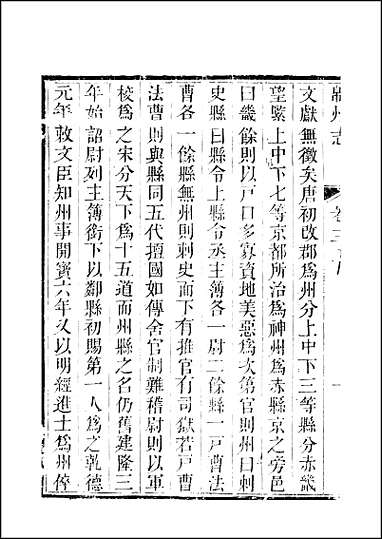 州志
文獻無徵矣唐初改郡爲州分上中下三等縣分赤畿
望緊上中下七等京都所治爲神州爲赤縣京之旁邑
曰畿餘則以戸口多寡資地美惡爲次第官則州曰刺
史縣曰縣令上縣令丞主簿各一尉二餘縣一戸曹法
曹各一餘縣無州則刺史而下有推官有司獄若戸曹
法曹則與縣同五代擅國如傳舍官制難稽尉則以軍
校爲之宋分天下爲十五道而州縣之名仍舊建隆三
年始詔尉列主簿銜下以鄰縣初賜第一人爲之乾德
元年敕文臣知州事開寶六年又以明經進士爲州倅